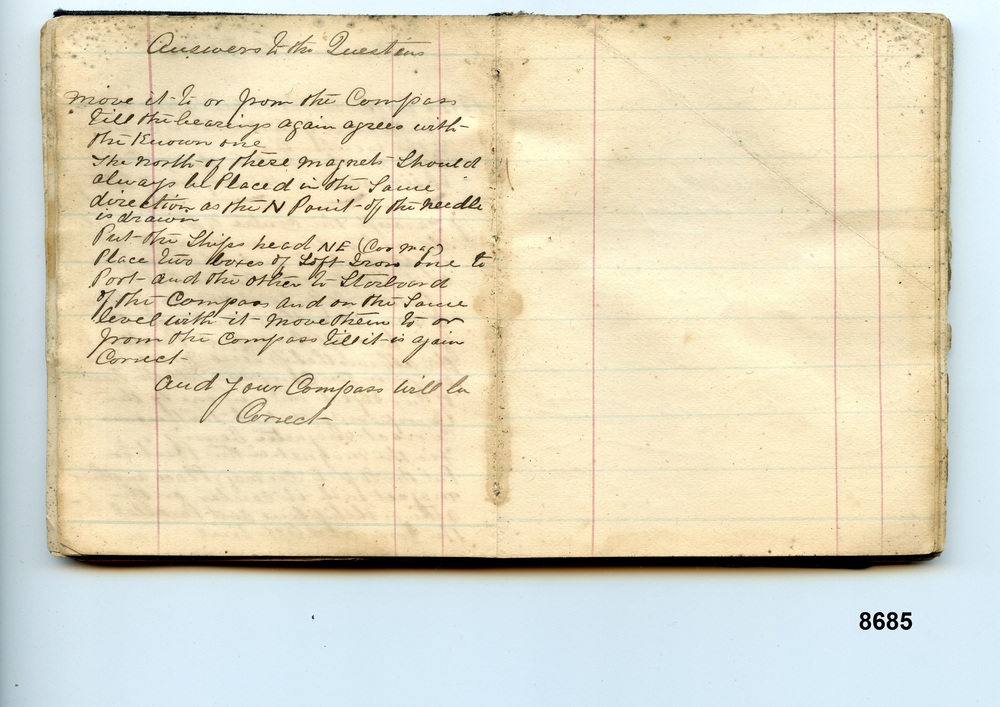 Answers to the Questions
move it to or from the Compass
till the bearings again agrees with
the Known one
The north of these magnets Should
always be Placed in the Same
direction as the N Point of the needle
is drawn
Put the Ships head NE (Cor mag)
Place two boxes of Soft Iron one to
Port and the other to Starboard
of the Compass and on the Same
level with it move them to or
from the Compass till it is again
Correct
And Your Compass will be
Correct
8685